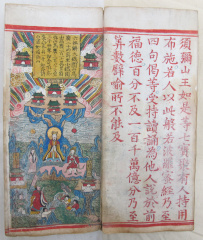 須彌山王如是等七寶聚有人持用
布施若人以此般若波羅蜜經乃至
四句偈等受持讀誦為他人說於前
福德百分不及一百千萬億分乃至
算數譬喻所不能及